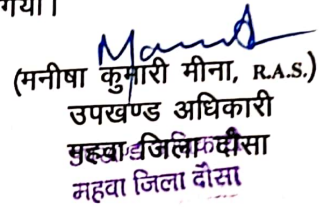 गया।
(मनीषा कुमारी मीना, R.A.S.)
उपखण्ड अधिकारी
महवा जिला दौसा
महवा जिला दौसा